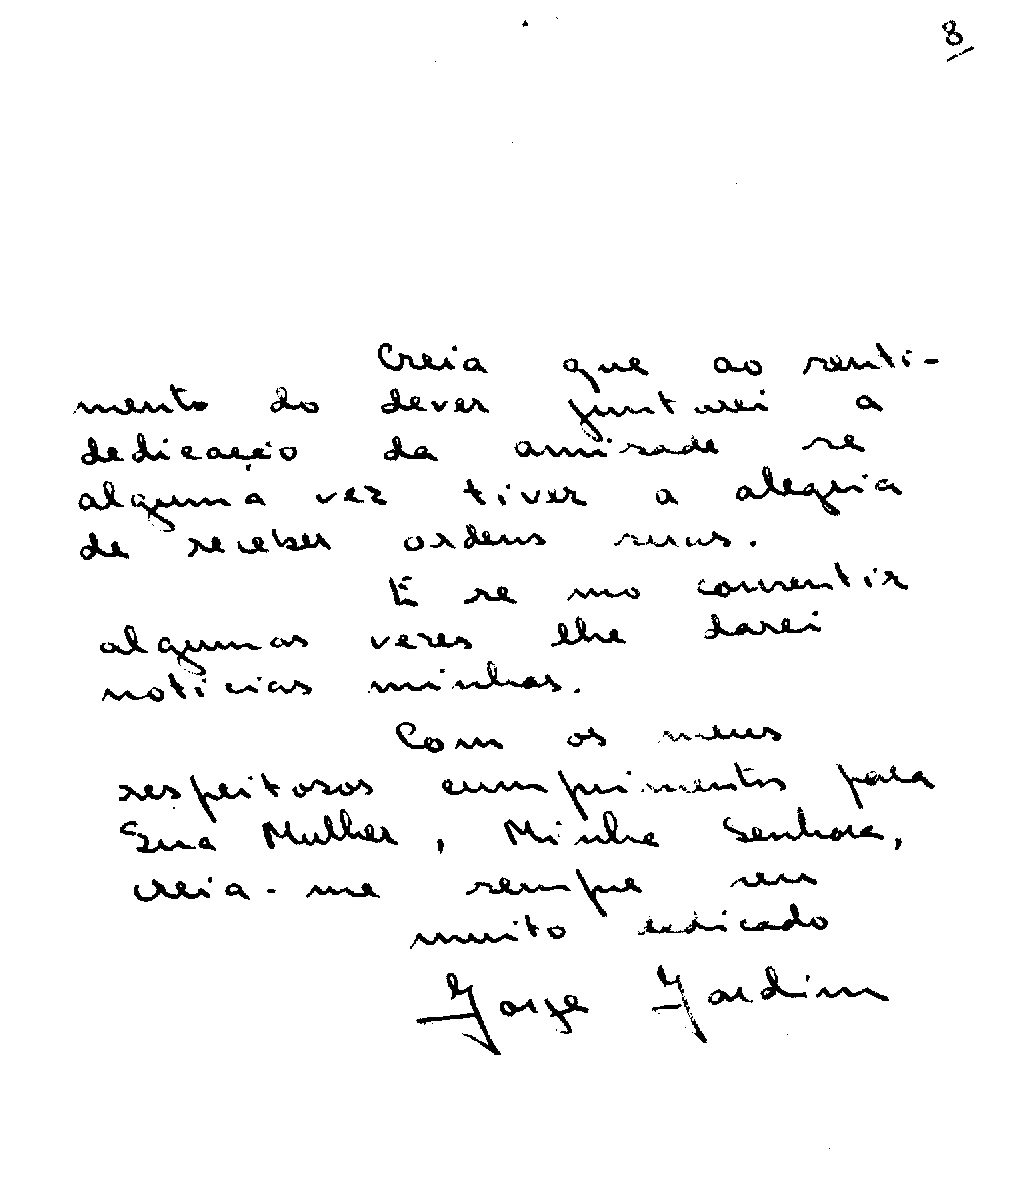 8
Creia que ao senti-
mento do dever juntarei a
dedicação da amisade se
alguma vez tiver a alegria
de receber ordens suas.
E se mo consentir
algumas vezes lhe darei
noticias minhas.
Com os meus
respeitosos cumprimentos para
Sua Mulher, Minha Senhora,
creia-me sempre seu
muito dedicado
Jorge Jardim